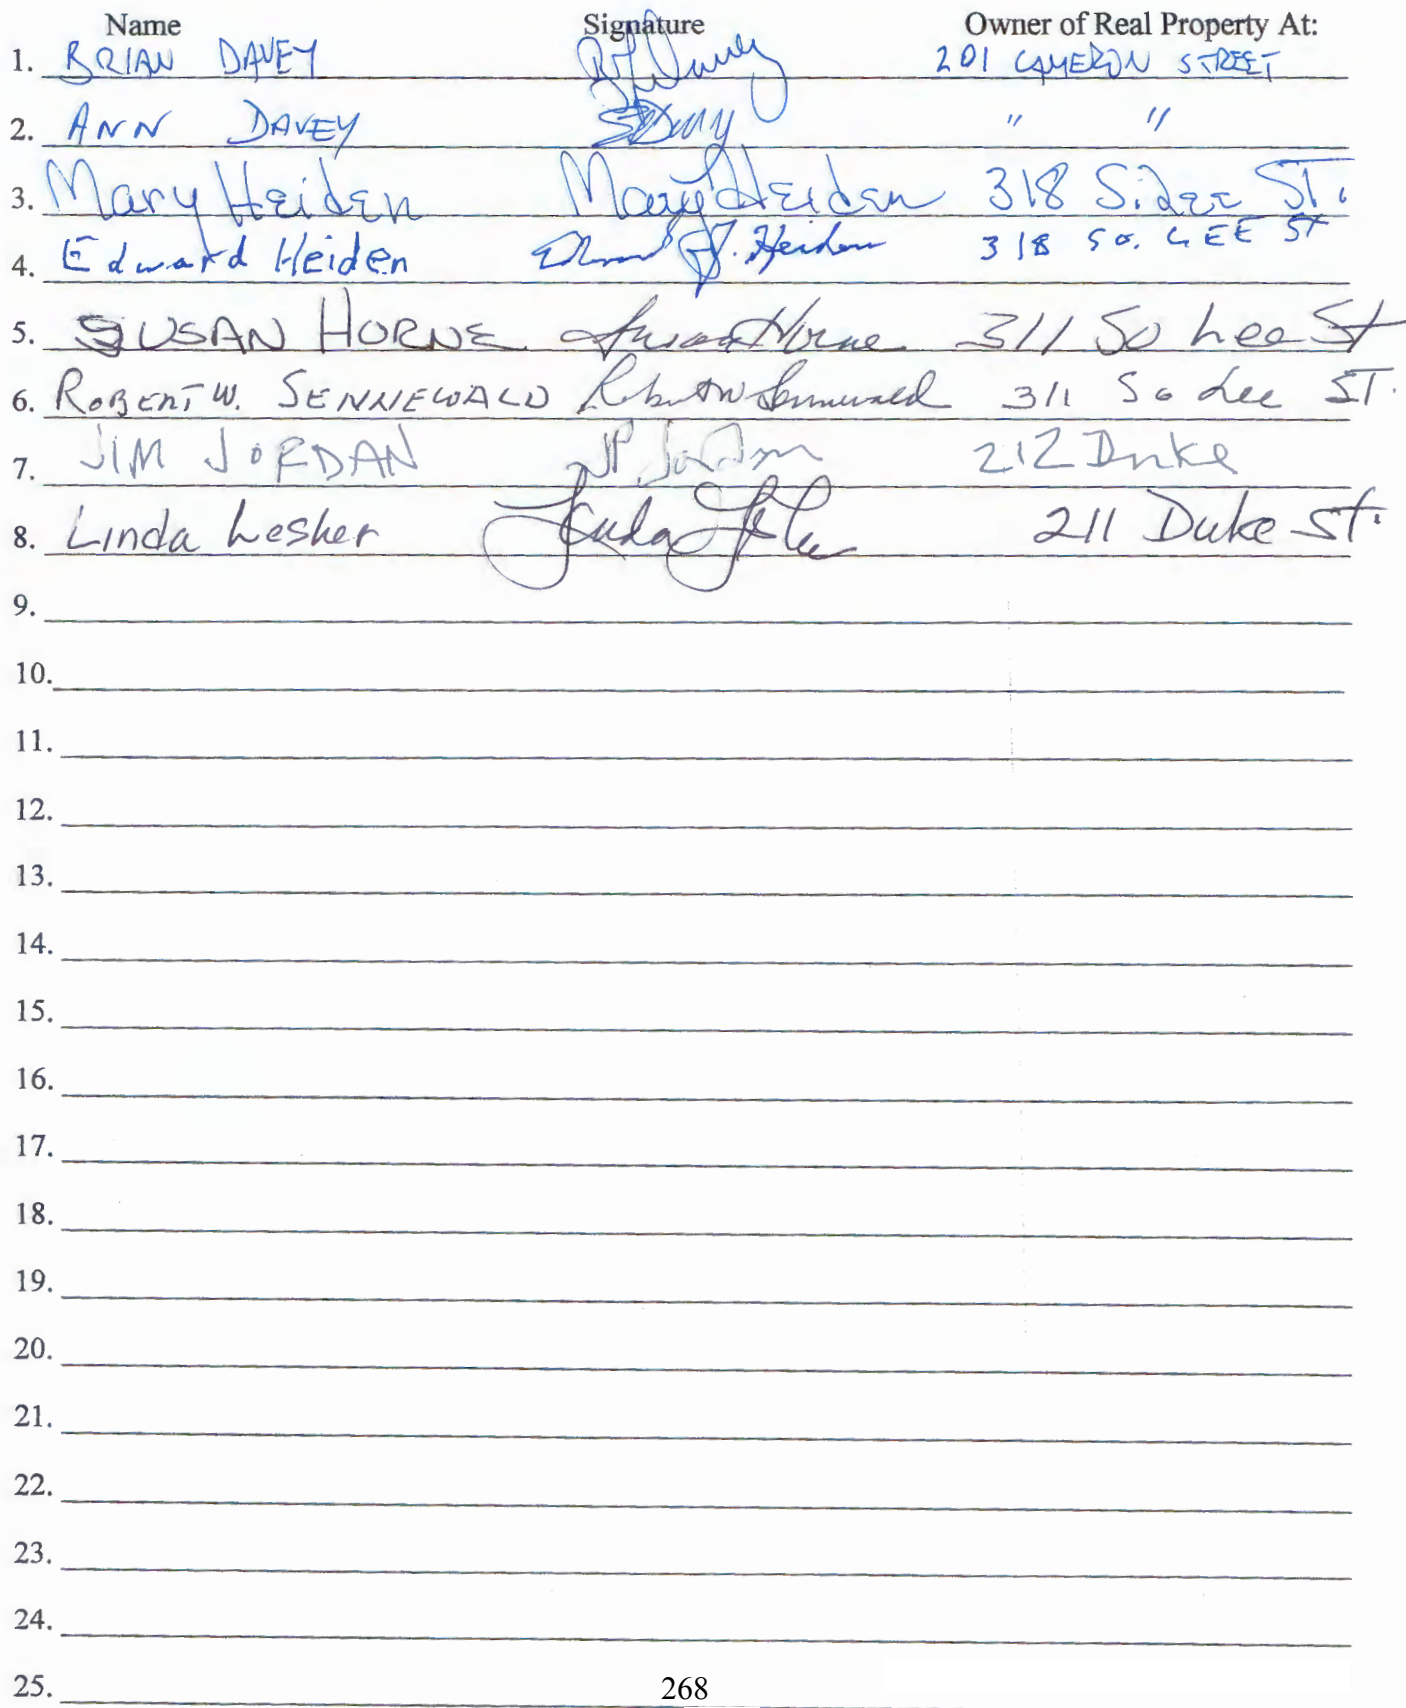 Name Signature Owner of Real Property At:
1. BRIAN DAVEY 201 CAMERON STREET
2. ANN DAVEY " "
3. Mary Heiden Mary Heiden 318 S. Lee ST.
4. Edward Heiden Edward J. Heiden 318 So. LEE ST
5. SUSAN HORNE Susan Horne 311 So Lee St
6. ROBERT W. SENNEWALD Robert W Sennewald 311 So Lee ST.
7. JIM JORDAN JP Jordan 212 Duke
8. Linda Lesher Linda 211 Duke St.
9.
10.
11.
12.
13.
14.
15.
16.
17.
18.
19.
20.
21.
22.
23.
24.
25.
268